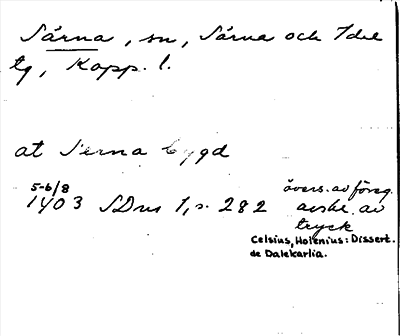 Särna, sn, Särna och Idre
tg, Kopp. l.
at Serna bygd
5-6/8
1403 SDns 1, s. 282
övers. av föreg.
avskr. av
tryck
Celsius, Holenius: Dissert.
de Dalekarlia.